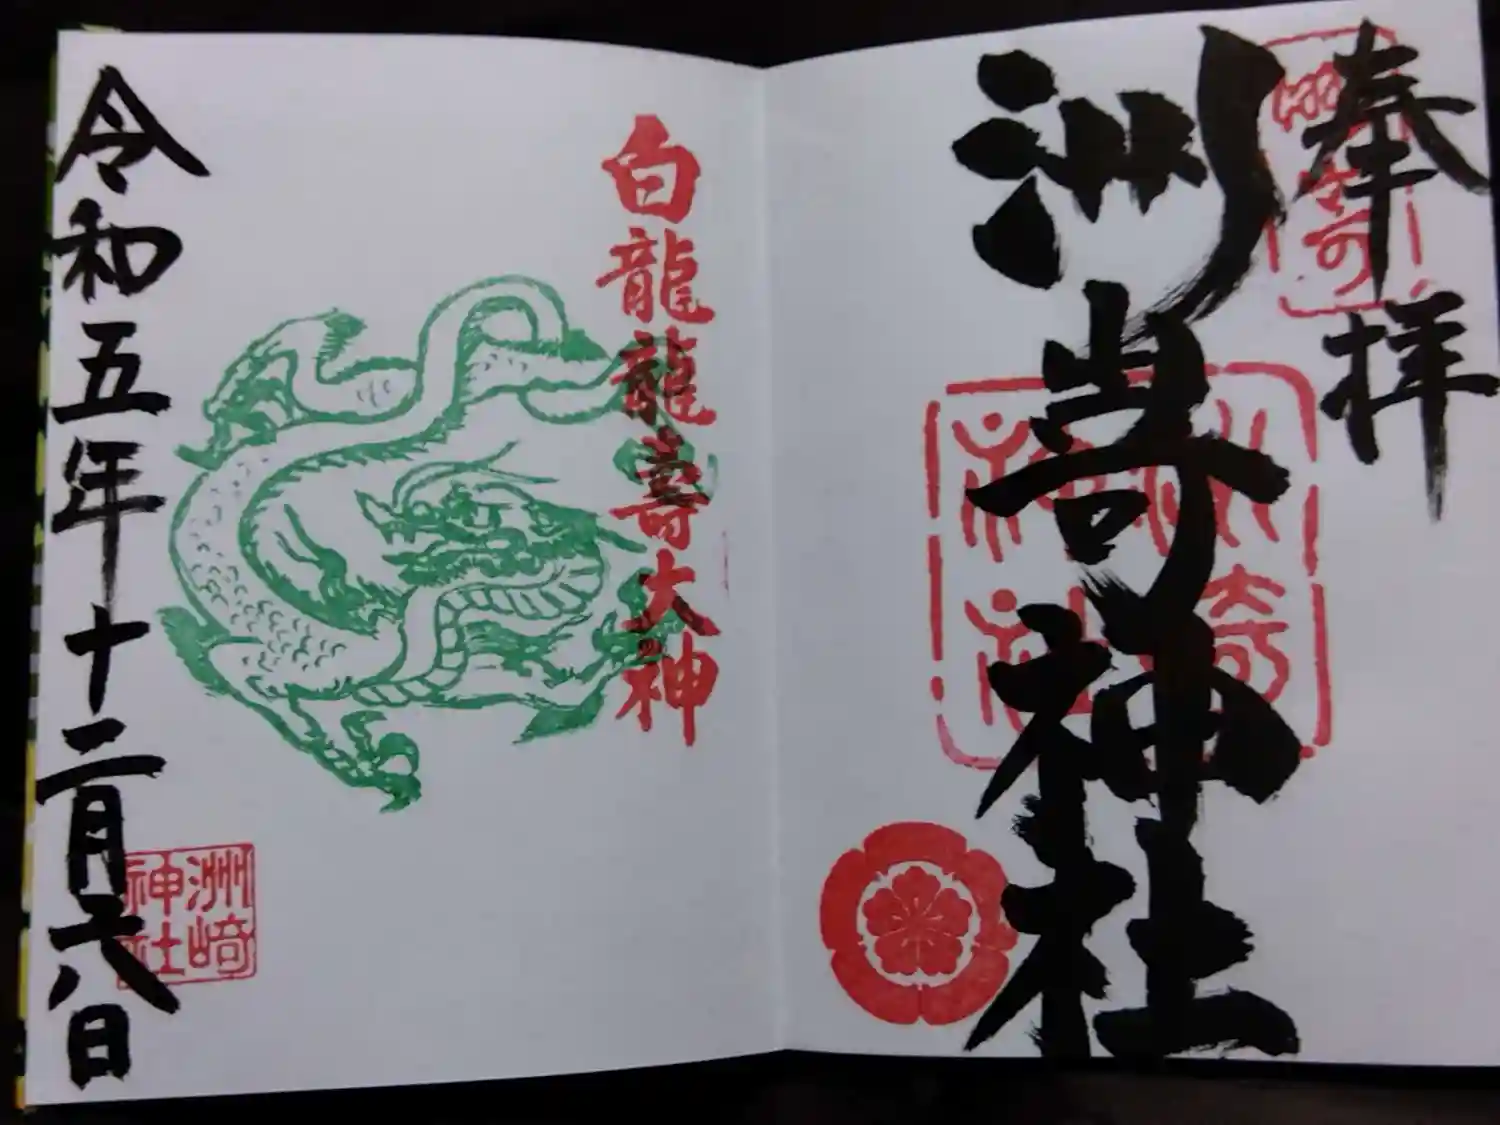 奉拝
洲嵜神社
洲崎
神社
白龍龍壽大神
令和五年十二月八日
洲崎
神社